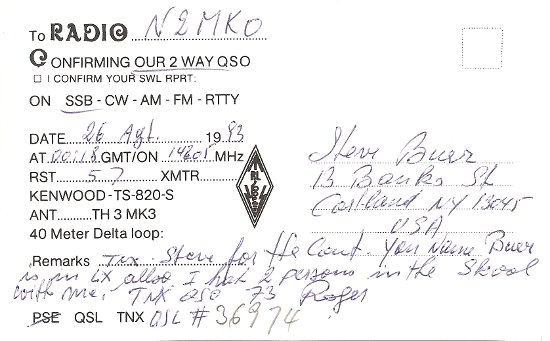 To RADIO N2MKO
CONFIRMING OUR 2 WAY QSO
I CONFIRM YOUR SWL RPRT:
ON SSB - CW - AM - FM - RTTY
DATE 26 Agt. 1993
AT 00:18 GMT/ON 14205 MHz
RST 57 XMTR
KENWOOD - TS-820-S
ANT TH 3 MK3
40 Meter Delta loop:
Steve Buer
13 Banks St
Cortland NY 13045
USA
Remarks Tnx Steve for the Cont. You Name Buer
is in LX allso I had 2 persons in the Skool
with me. TNX QSO 73 Roger
PSE QSL TNX QSL # 36974